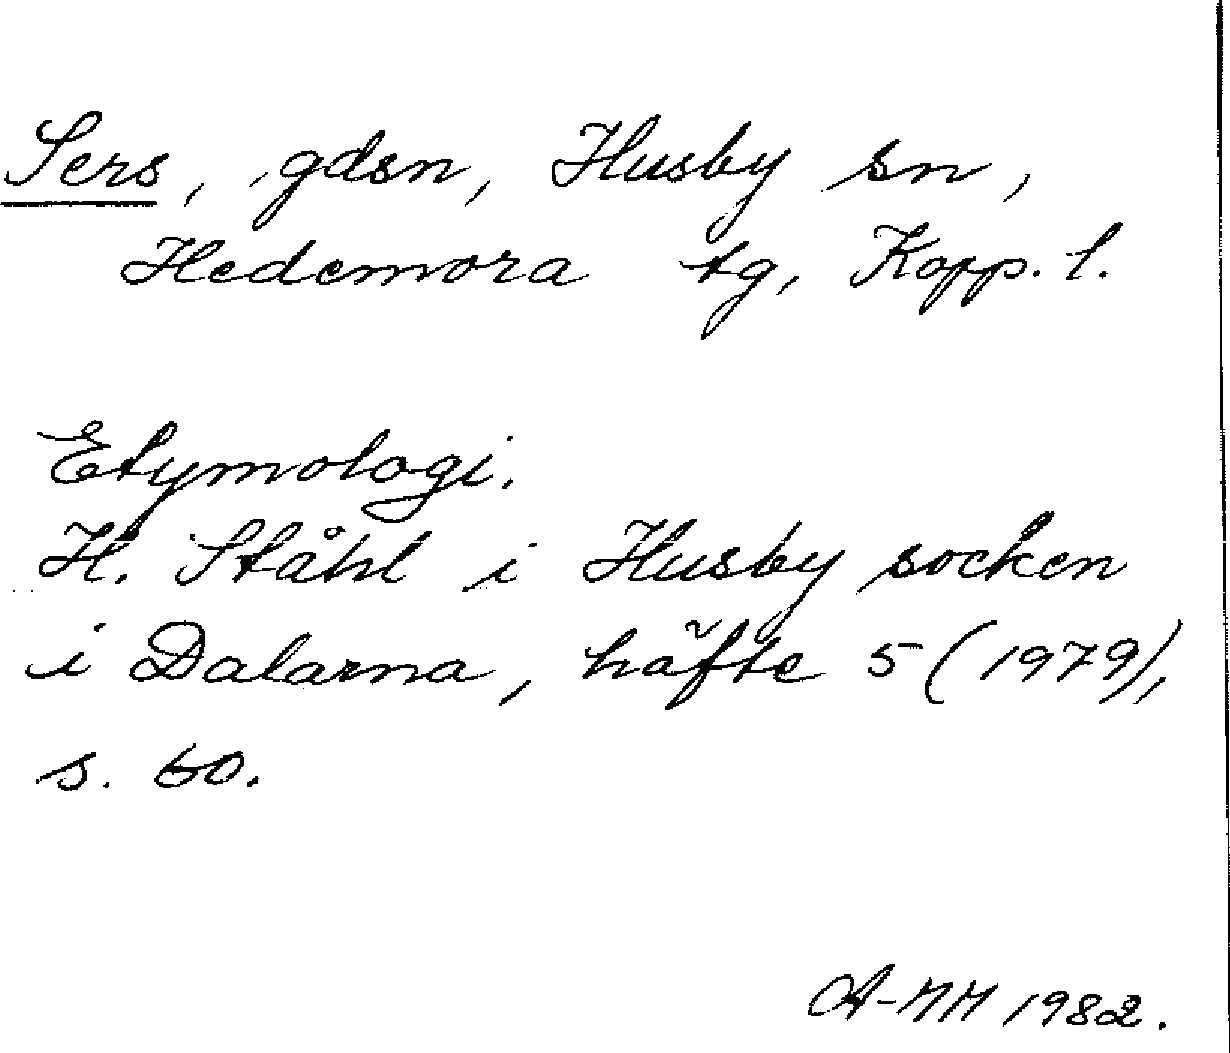 Sers, gdsn, Husby sn,
Hedemora tg, Kopp. l.
Etymologi.
H. Ståhl i Husby socken
i Dalarna, häfte 5 (1979),
s. 60.
A-MH 1982.